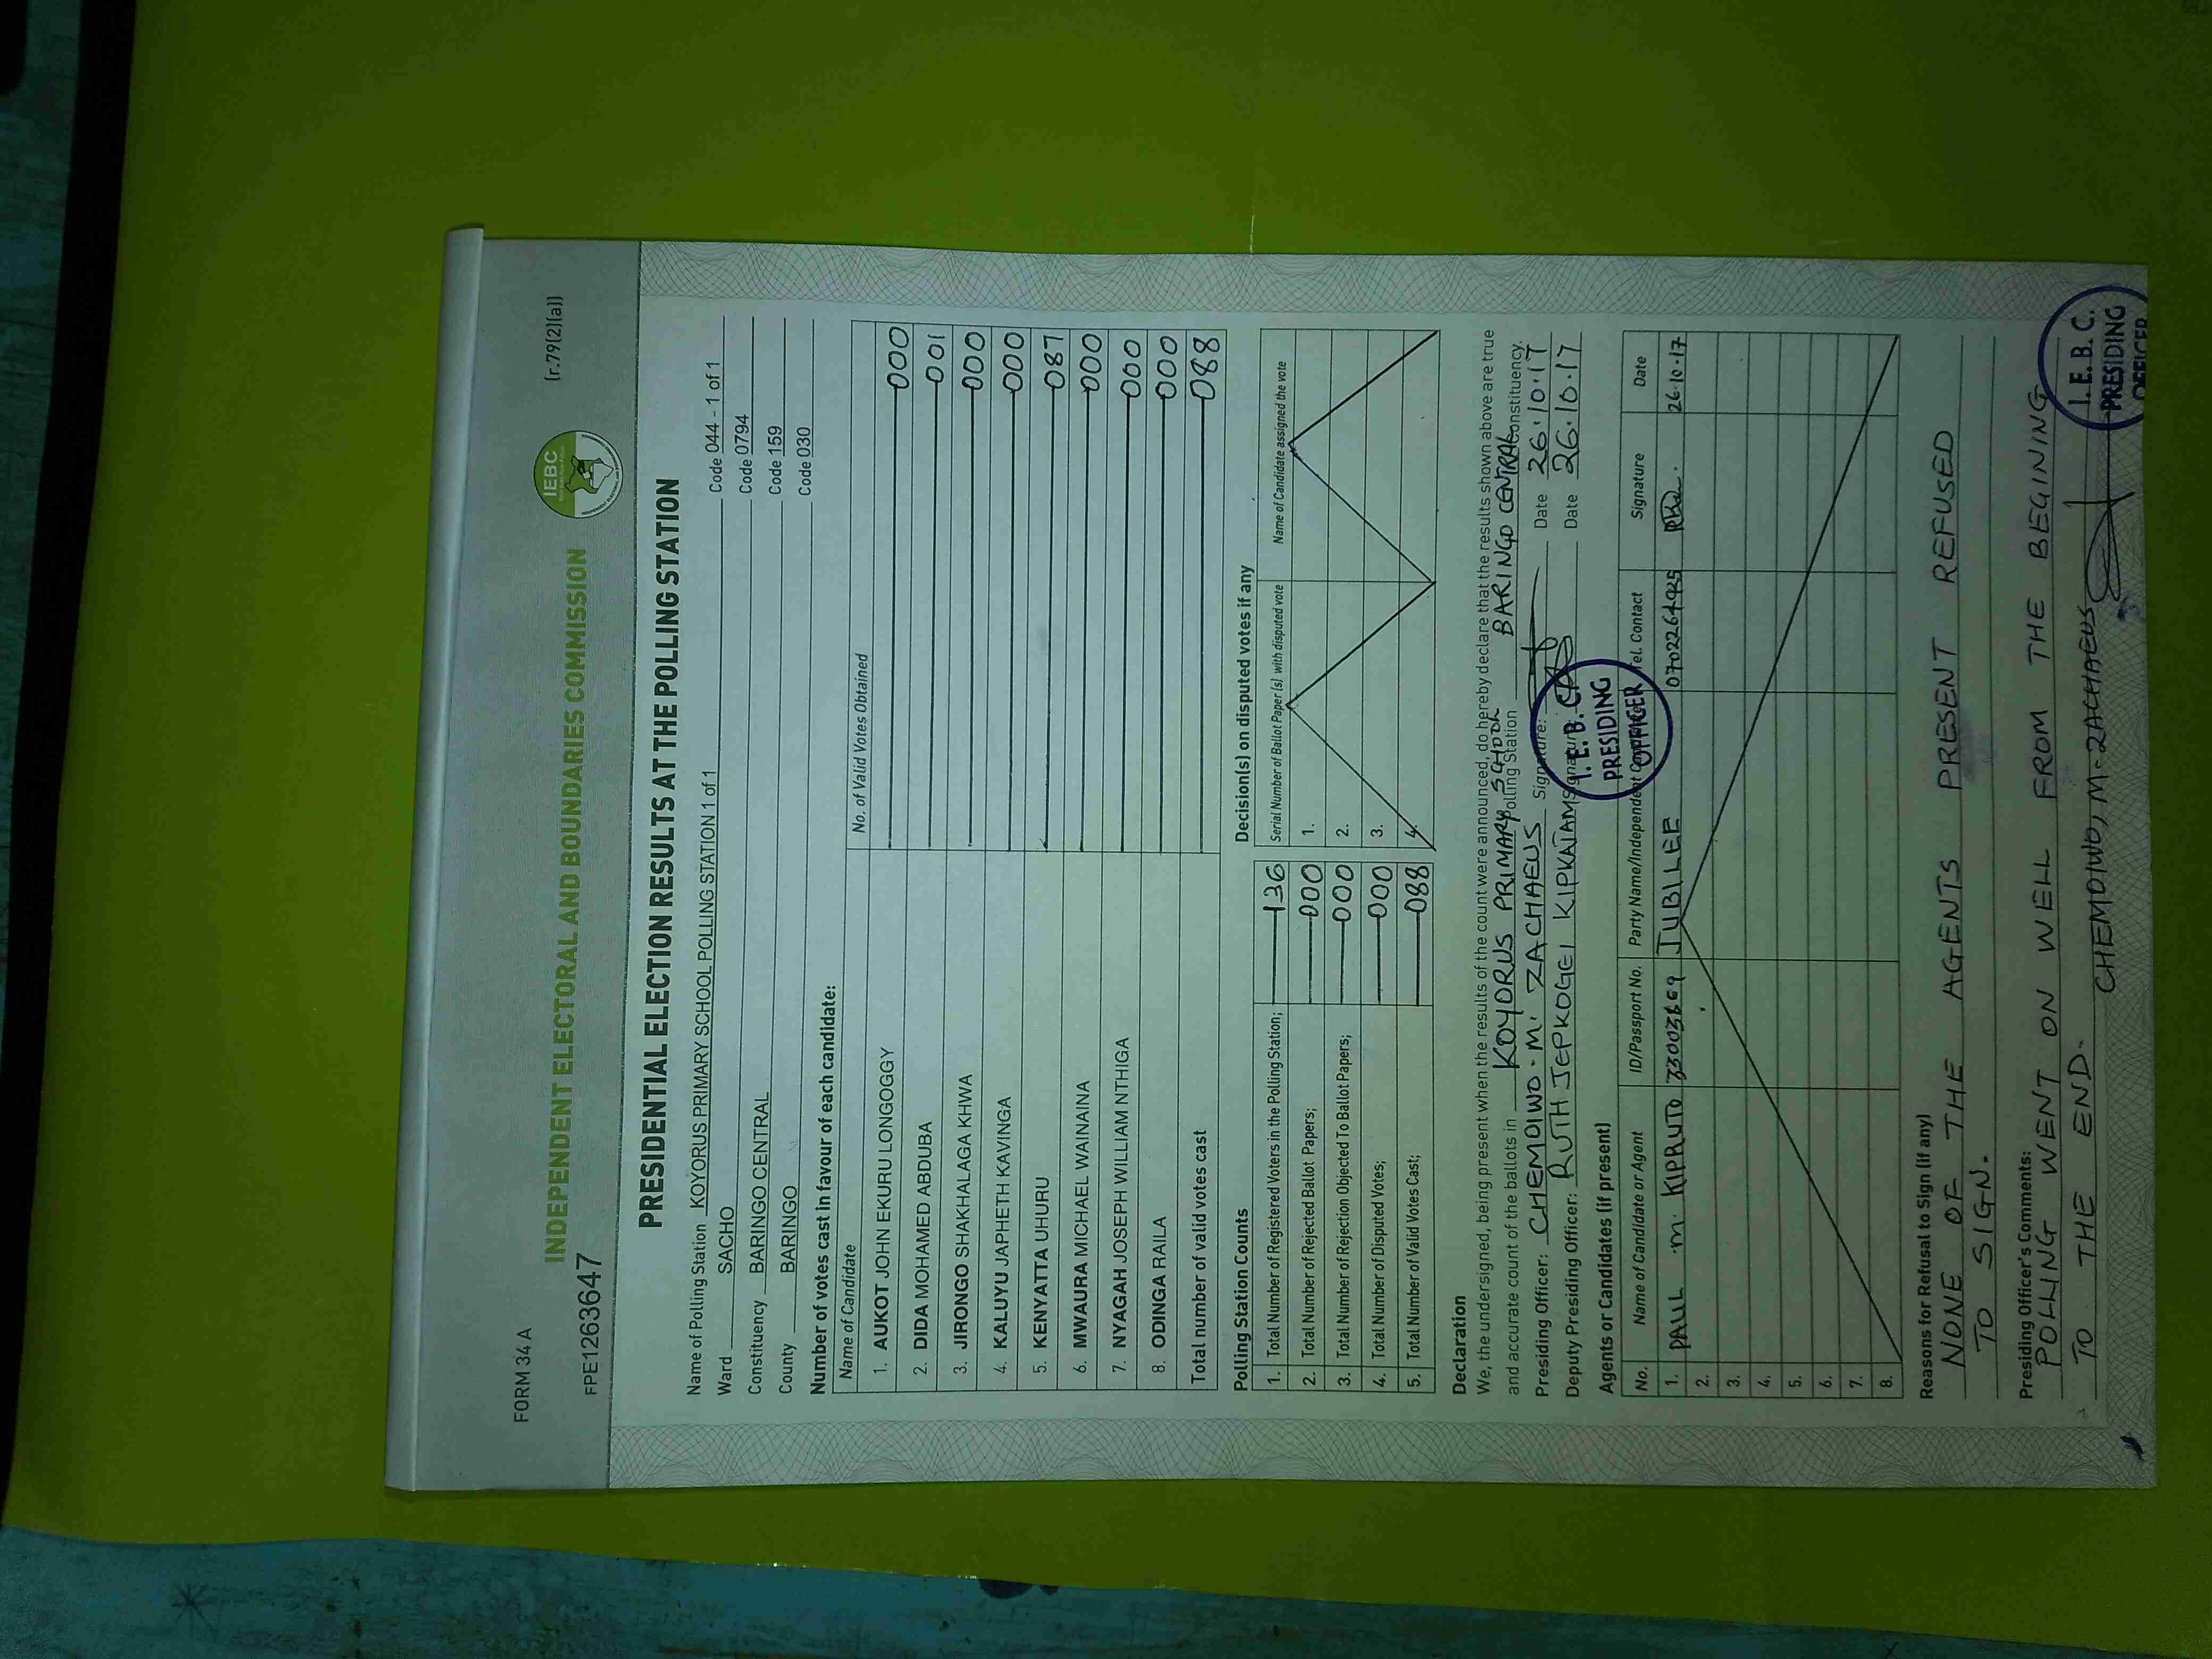 FORM 34 A
(r.79(2)(a))
IEBC
INDEPENDENT ELECTORAL AND BOUNDARIES COMMISSION
FPE1263647
PRESIDENTIAL ELECTION RESULTS AT THE POLLING STATION
Name of Polling Station KOYORUS PRIMARY SCHOOL POLLING STATION 1 of 1 Code 044 - 1 of 1
Ward SACHO Code 0794
Constituency BARINGO CENTRAL Code 159
County BARINGO Code 030
Number of votes cast in favour of each candidate:
Name of Candidate No. of Valid Votes Obtained
1. AUKOT JOHN EKURU LONGOGGY 000
2. DIDA MOHAMED ABDUBA 001
3. JIRONGO SHAKHALAGA KHWA 000
4. KALUYU JAPHETH KAVINGA 000
5. KENYATTA UHURU 087
6. MWAURA MICHAEL WAINAINA 000
7. NYAGAH JOSEPH WILLIAM NTHIGA 000
8. ODINGA RAILA 000
Total number of valid votes cast 088
Polling Station Counts
1. Total Number of Registered Voters in the Polling Station; 136
2. Total Number of Rejected Ballot Papers; 000
3. Total Number of Rejection Objected To Ballot Papers; 000
4. Total Number of Disputed Votes; 000
5. Total Number of Valid Votes Cast; 088
Decision(s) on disputed votes if any
Serial Number of Ballot Paper(s) with disputed vote Name of Candidate assigned the vote
1.
2.
3.
4.
Declaration
We, the undersigned, being present when the results of the count were announced, do hereby declare that the results shown above are true
and accurate count of the ballots in KOYORUS PRIMARY SCHOOL Polling Station BARINGO CENTRAL Constituency.
Presiding Officer: CHEMOIWO. M. ZACHAEUS Signature: Date 26.10.17
Deputy Presiding Officer: RUTH JEPKOGEI KIPKANAM Signature: Date 26.10.17
I. E. B. C.
PRESIDING
OFFICER
Agents or Candidates (if present)
No. Name of Candidate or Agent ID/Passport No. Party Name/Independent Tel. Contact Signature Date
1. PAUL M. KIPRUTO JUBILEE 26.10.17
2.
3.
4.
5.
6.
7.
8.
Reasons for Refusal to Sign (if any)
NONE OF THE AGENTS PRESENT REFUSED
TO SIGN.
Presiding Officer's Comments:
POLLING WENT ON WELL FROM THE BEGINING
TO THE END.
CHEMOIWO, M. ZACHAEUS
I. E. B. C.
PRESIDING
OFFICER